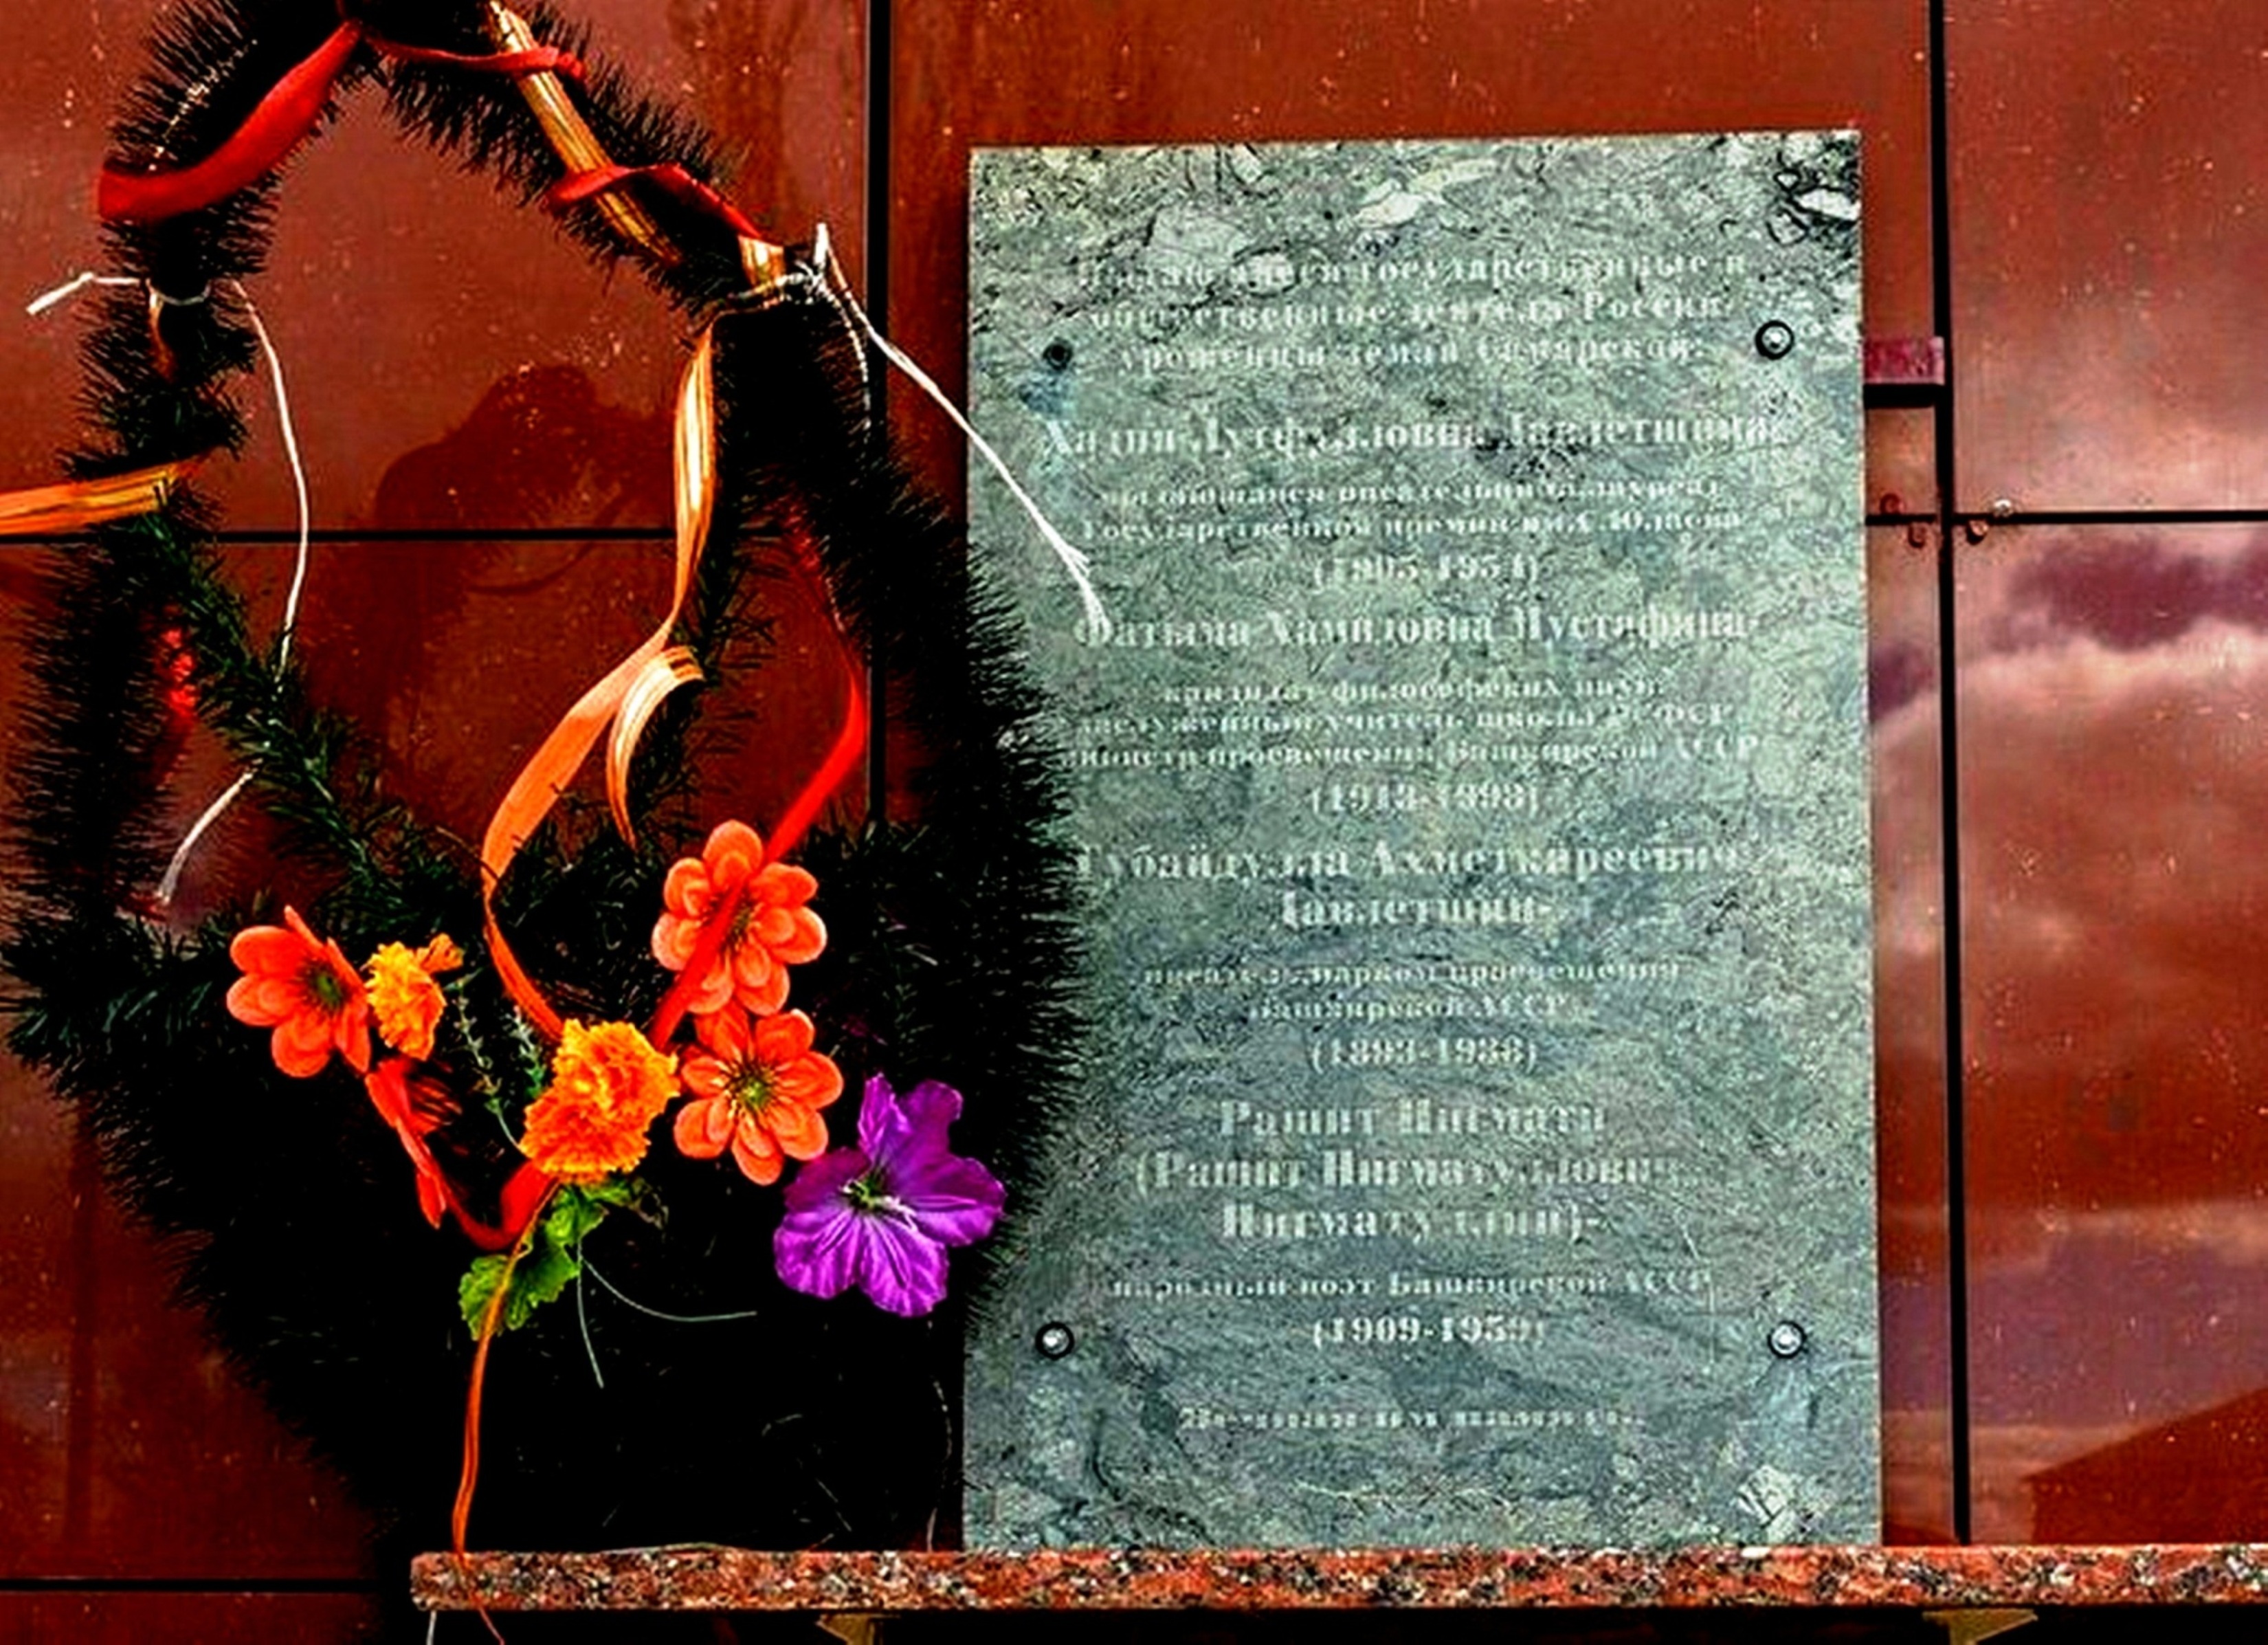 Выдающиеся государственные и
общественные деятели России
уроженцы земли Самарской:
Хадия Лутфулловна Давлетшина-
выдающаяся писательница, лауреат
Государственной премии им.С.Юлаева
(1905-1954)
Фатыма Хамидовна Мустафина-
кандидат философских наук,
заслуженный учитель школы РСФСР
министр просвещения Башкирской АССР
(1913-1998)
Губайдулла Ахметкареевич
Давлетшин-
писатель, нарком просвещения
Башкирской АССР
(1893-1938)
Рашит Нигмати
(Рашит Нигматуллович
Нигматуллин)-
народный поэт Башкирской АССР
(1909-1959)